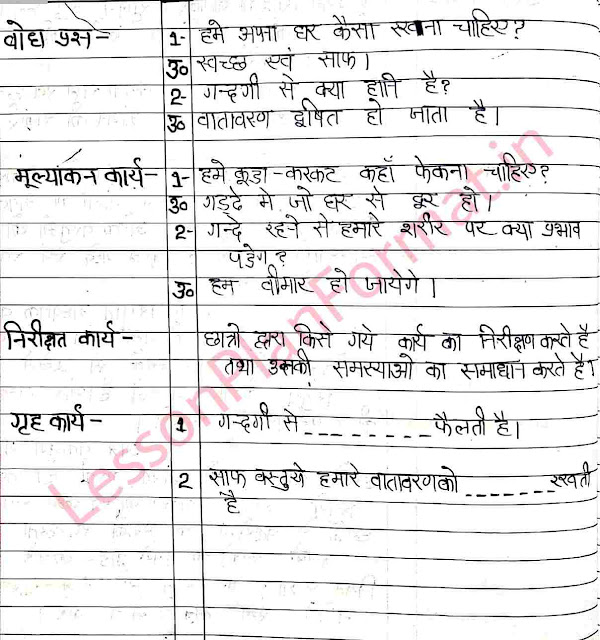 बोध प्रश्न - 1- हमे अपना घर कैसा रखना चाहिए?
उ० स्वच्छ एवं साफ।
2- गन्दगी से क्या हानि है?
उ० वातावरण दूषित हो जाता है।
मूल्यांकन कार्य - 1- हमे कूड़ा-करकट कहाँ फेकना चाहिए?
उ० गड्ढे मे जो घर से दूर हो।
2- गन्दे रहने से हमारे शरीर पर क्या प्रभाव
पड़ेगा?
उ० हम बीमार हो जायेगे।
निरीक्षत कार्य - छात्रो द्वारा किसे गये कार्य का निरीक्षण करते है
तथा उनकी समस्याओ का समाधान करते है।
गृह कार्य - 1 गन्दगी से _ _ _ _ _ _ _ _ फैलती है।
2 साफ वस्तुये हमारे वातावरणको _ _ _ _ _ _ _ रखती
है
LessonPlanFormat.in